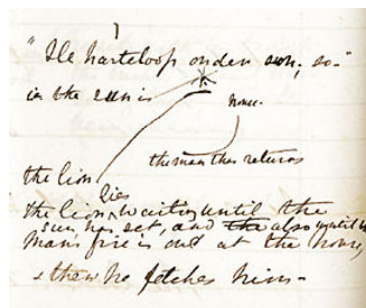 "Ile harteloop onder son, so-"
in the sun is
house.
the man thus returns
the lion
the lion lies waiting until the
sun has set, and the also until the
man's fire is out at the house,
& then he fetches him-